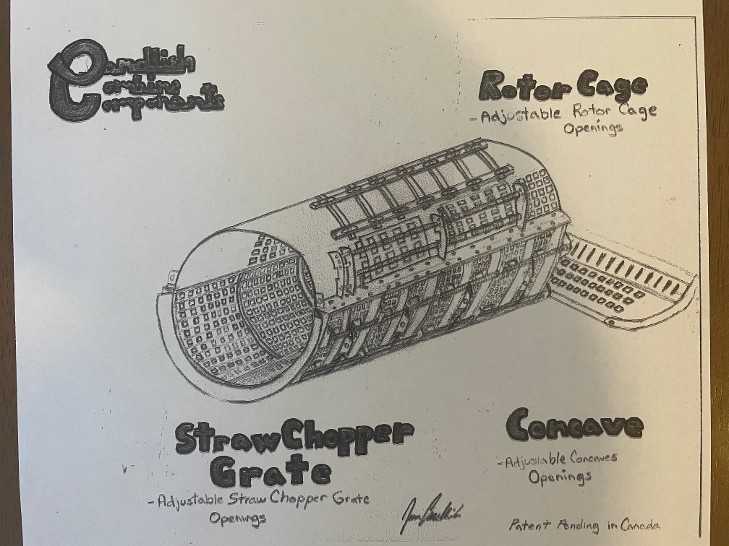 Combine
Components
Rotor Cage
- Adjustable Rotor Cage
Openings
Straw Chopper
Grate
- Adjustable Straw Chopper Grate
Openings
Concave
- Adjustable Concaves
Openings
Patent Pending in Canada